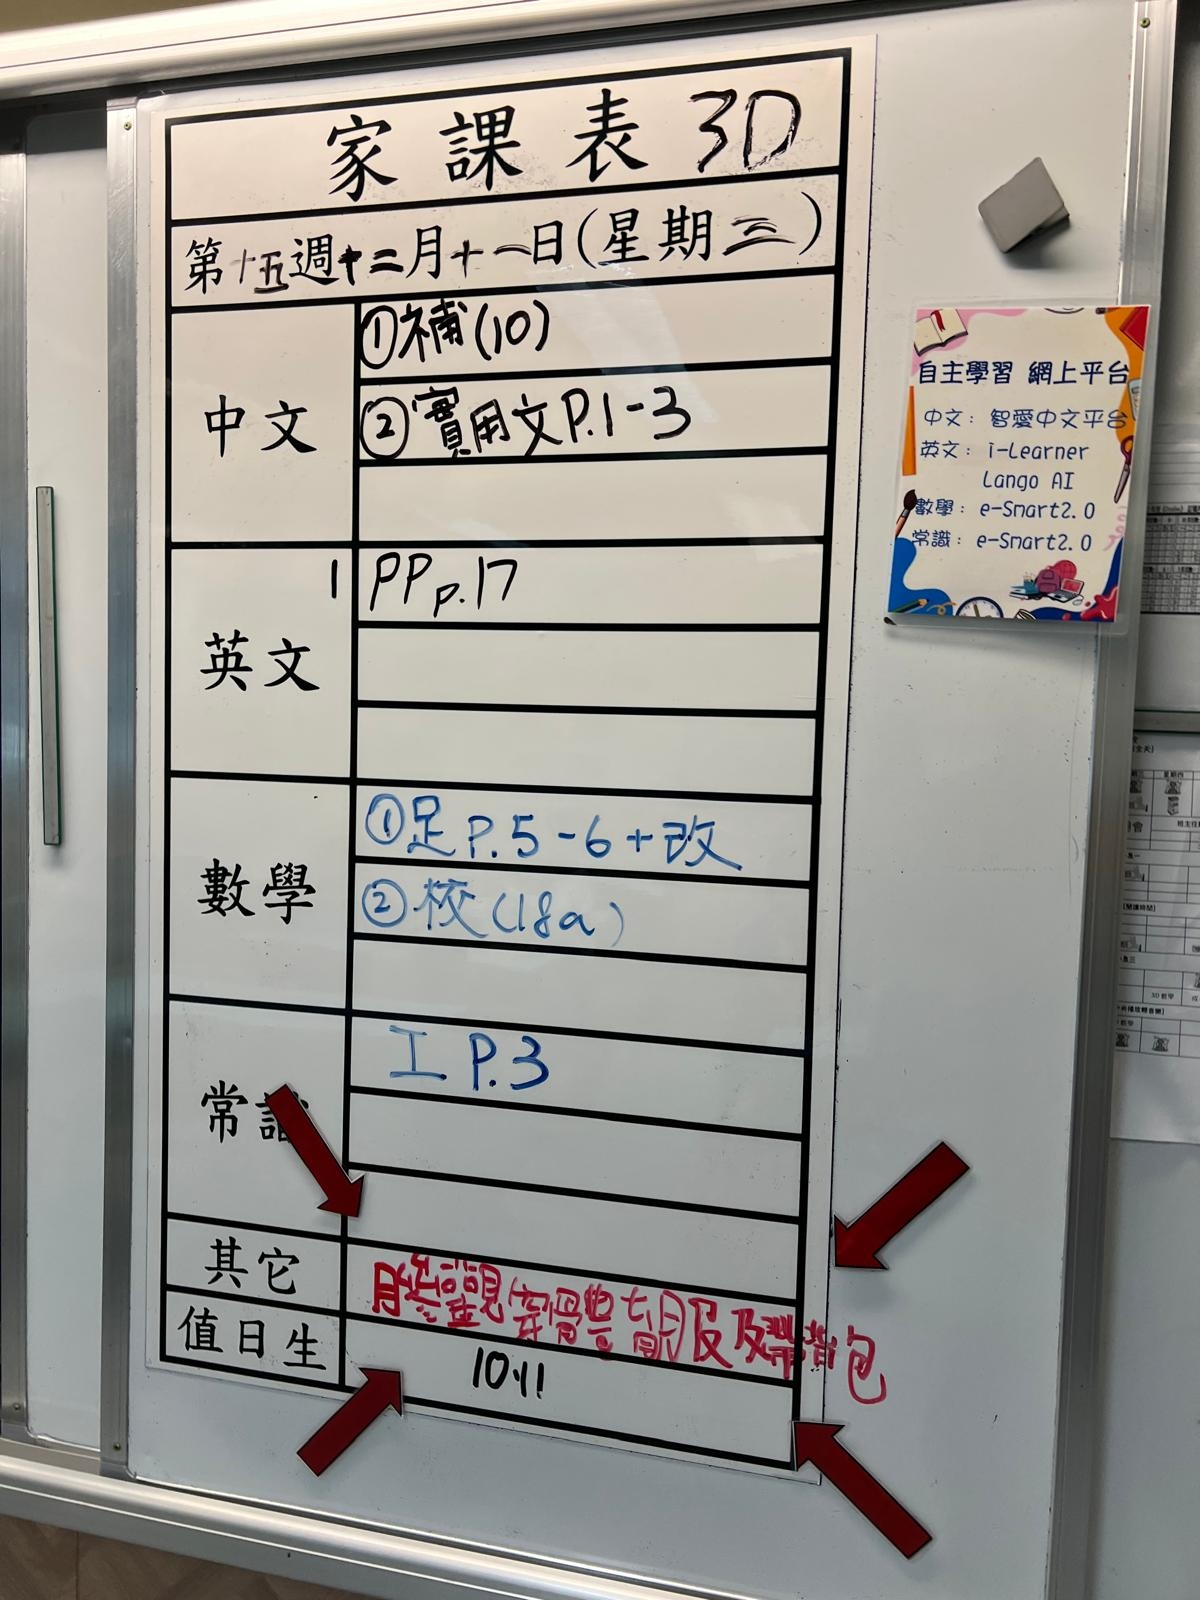 家課表 3D
第十五週十二月十一日(星期三)
中文
①補(10)
②實用文P.1-3
英文
1 PP p.17
數學
①足P.5-6+改
②校(18a)
常識
工 P.3
其它
穿體育服及攜背包
值日生
10,11
自主學習 網上平台
中文：智愛中文平台
英文：i-Learner
Lango AI
數學：e-Smart2.0
常識：e-Smart2.0